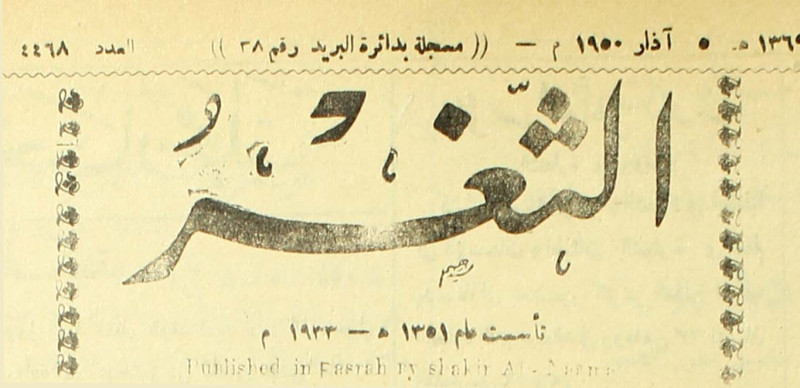 ١٣٦٩ هـ ٥ آذار ١٩٥٠ م — (( مسجلة بدائرة البريد رقم ٢٨ )) العدد ٤٤٦٨
الثغر
رحيم
تأسست عام ١٣٥١ ه — ١٩٣٣ م
Published in Basrah by shakir Al-